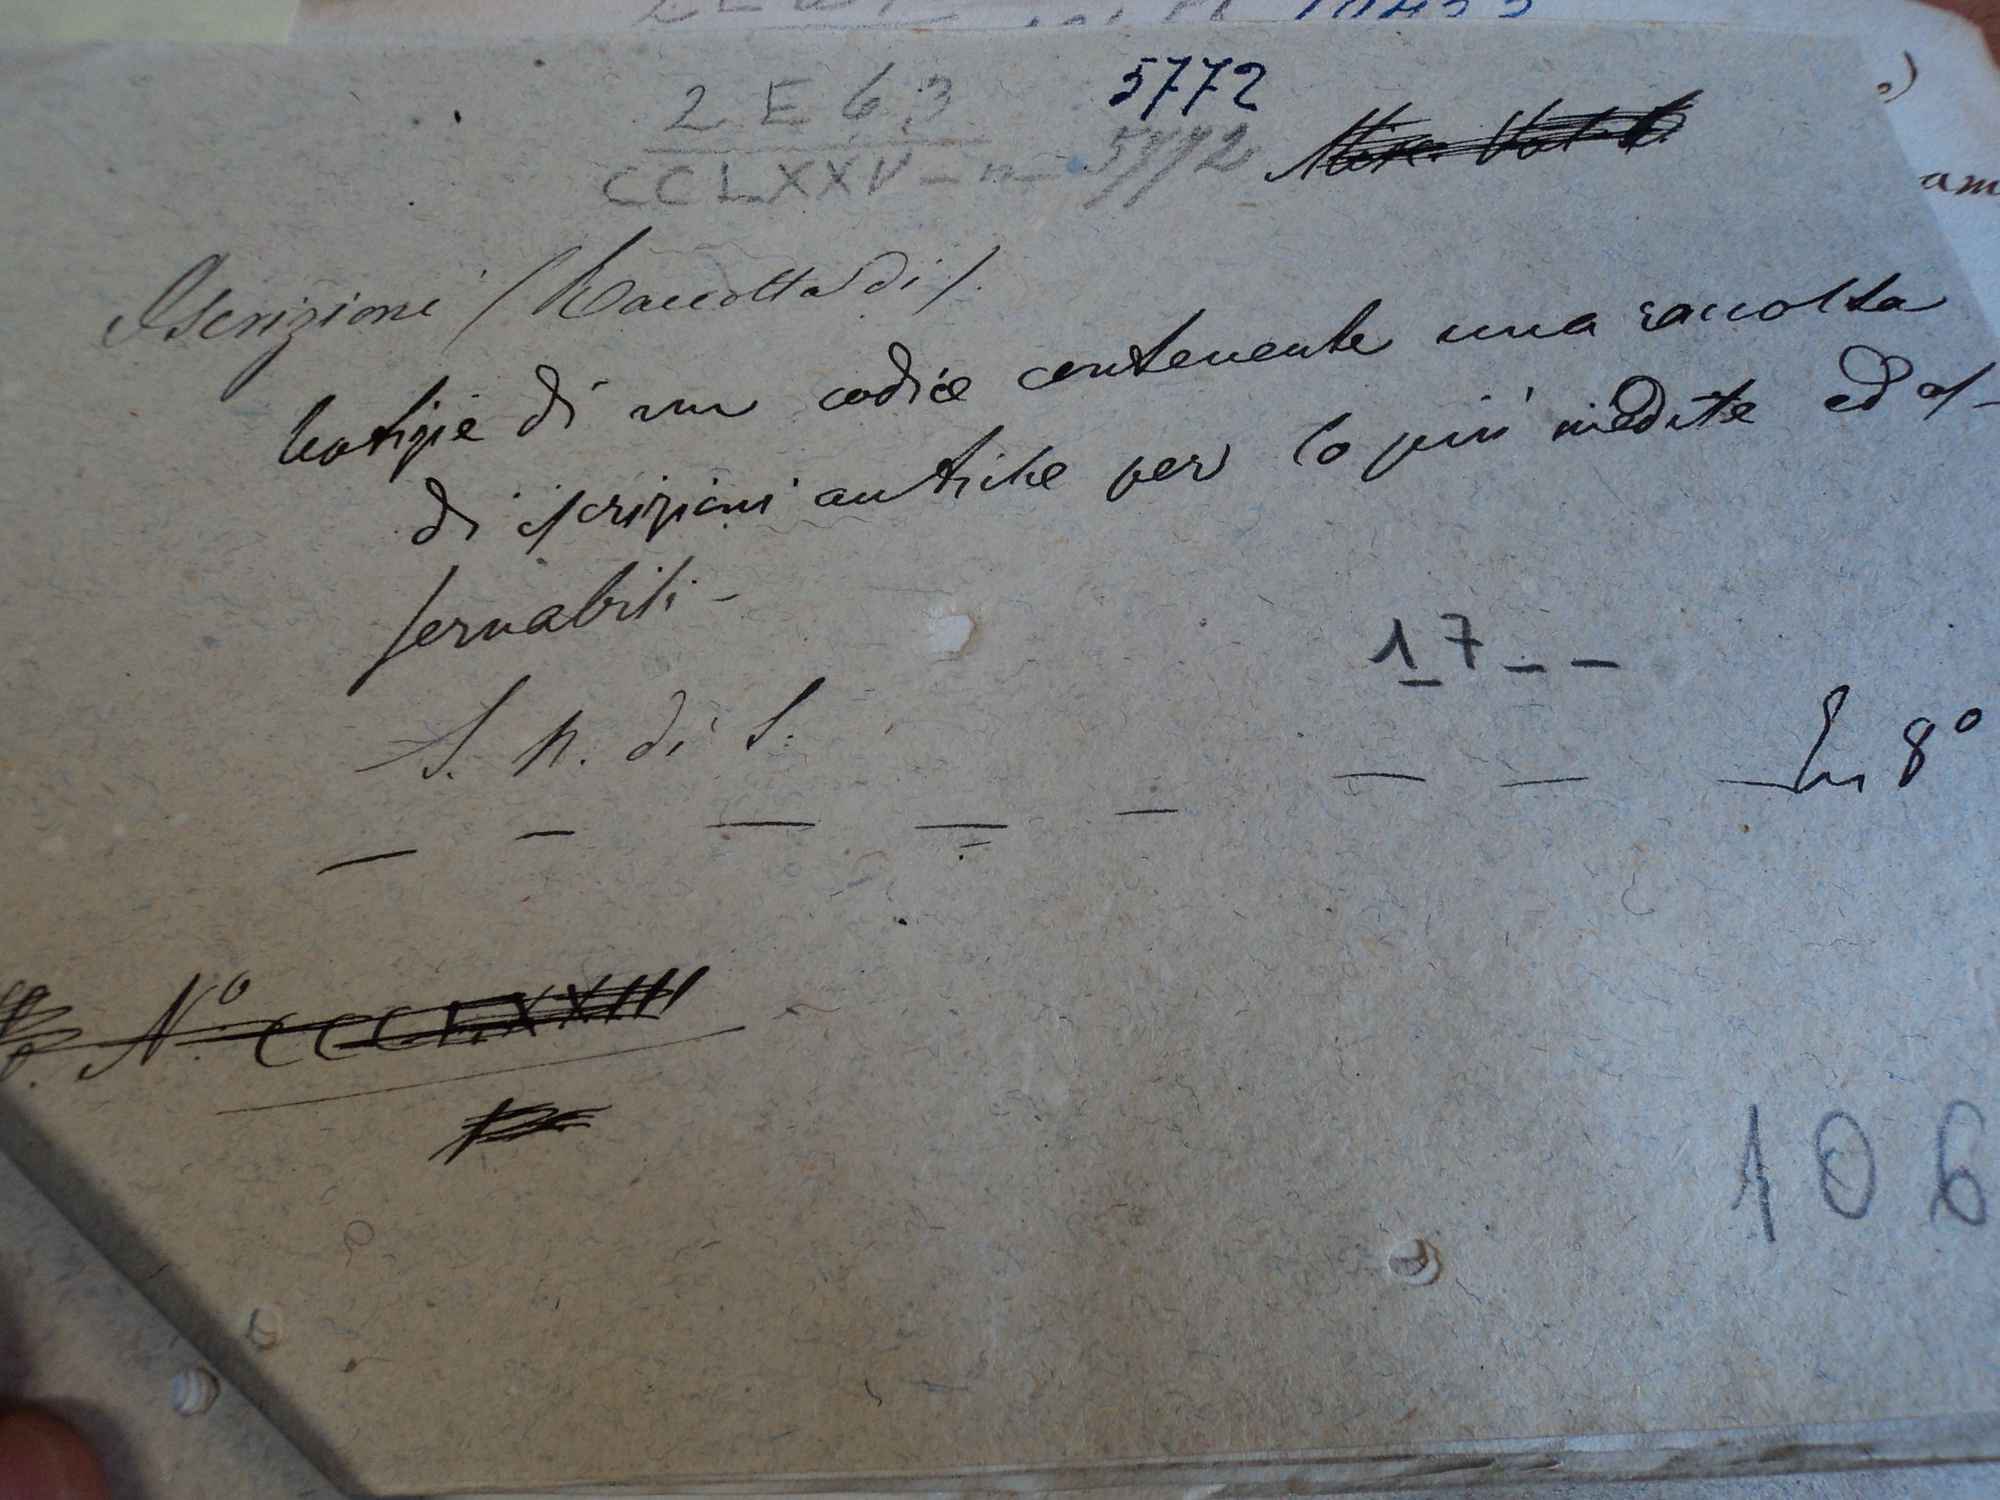 2 E 63 5772
CCLXXV - n - 5772
Iscrizioni (Raccolta di).
Notizie di un codice contenente una raccolta
di iscrizioni antiche per lo più inedite ed os-
servabili -
S. n. di S.
17 _ _
In 8º
Nº CCCLXXIII
106